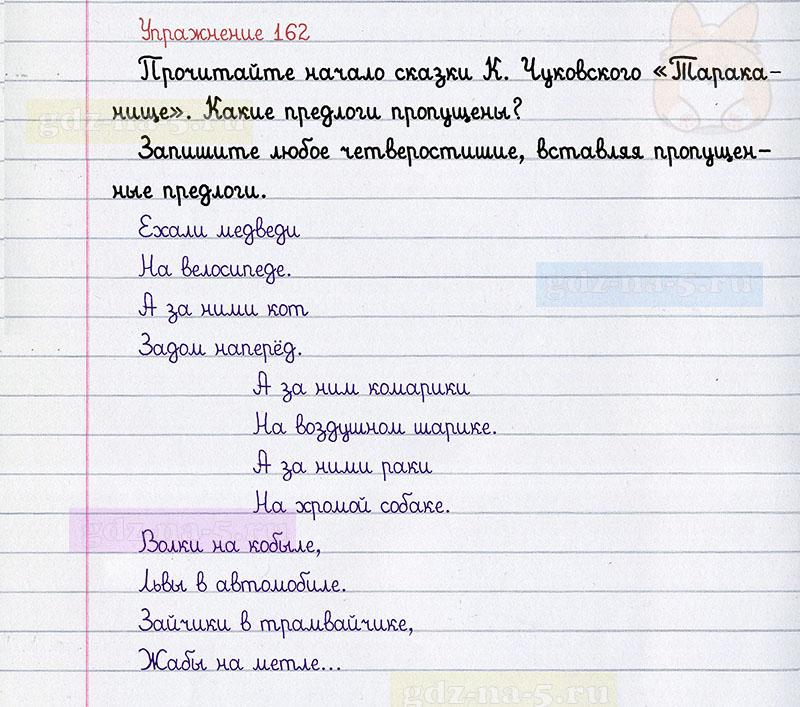 Упражнение 162
Прочитайте начало сказки К. Чуковского «Тарака-
нище». Какие предлоги пропущены?
gdz-na-5.ru
Запишите любое четверостишие, вставляя пропущен-
ные предлоги.
Ехали медведи
На велосипеде.
gdz-na-5.ru
А за ними кот
Задом наперёд.
А за ним комарики
На воздушном шарике.
А за ними раки
На хромой собаке.
gdz-na-5.ru
Волки на кобыле,
Львы в автомобиле.
Зайчики в трамвайчике,
Жабы на метле...
gdz-na-5.ru